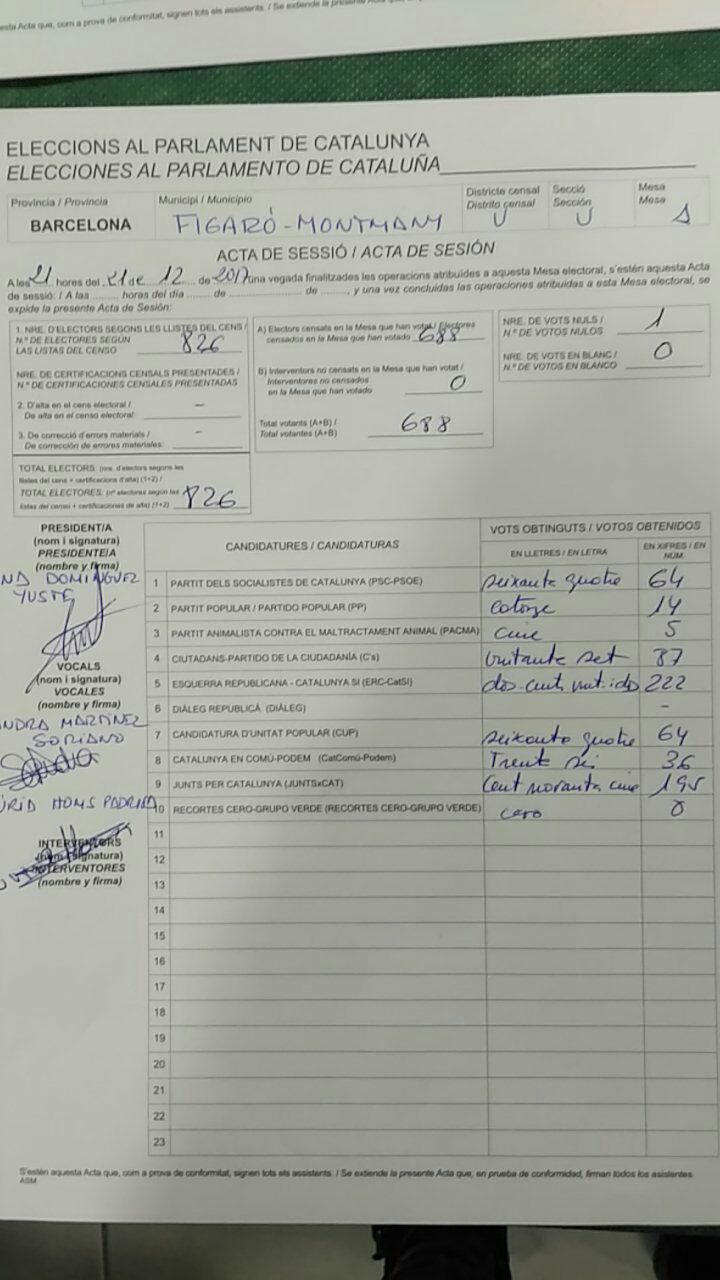 esta Acta que, com a prova de conformitat, signen tots els assistents. / Se extiende la presente Acta que,
ELECCIONS AL PARLAMENT DE CATALUNYA
ELECCIONES AL PARLAMENTO DE CATALUÑA
Província / Provincia
Municipi / Municipio
Districte censal
Distrito censal
Secció
Sección
Mesa
Mesa
BARCELONA
FIGARÓ-MONTMANY
U
U
1
ACTA DE SESSIÓ / ACTA DE SESIÓN
A les 21 hores del 21 de 12 de 2017 una vegada finalitzades les operacions atribuïdes a aquesta Mesa electoral, s'estén aquesta Acta
de sessió: / A las ........ horas del día ........ de ........................ de ........, y una vez concluidas las operaciones atribuidas a esta Mesa electoral, se
expide la presente Acta de Sesión:
1. NRE. D'ELECTORS SEGONS LES LLISTES DEL CENS /
N.º DE ELECTORES SEGÚN
LAS LISTAS DEL CENSO 826
NRE. DE CERTIFICACIONS CENSALS PRESENTADES /
N.º DE CERTIFICACIONES CENSALES PRESENTADAS
2. D'alta en el cens electoral /
De alta en el censo electoral: –
3. De correcció d'errors materials /
De corrección de errores materiales: –
TOTAL ELECTORS: (nre. d'electors segons les
llistes del cens + certificacions d'alta) (1+2) /
TOTAL ELECTORES: (nº electores según las
listas del censo + certificaciones de alta) (1+2) 826
A) Electors censats en la Mesa que han votat / Electores
censados en la Mesa que han votado 688
B) Interventors no censats en la Mesa que han votat /
Interventores no censados
en la Mesa que han votado 0
Total votants (A+B) /
Total votantes (A+B) 688
NRE. DE VOTS NULS /
N.º DE VOTOS NULOS 1
NRE. DE VOTS EN BLANC /
N.º DE VOTOS EN BLANCO 0
PRESIDENT/A
(nom i signatura)
PRESIDENTE/A
(nombre y firma)
DOMINGUEZ
YUSTE
VOCALS
(nom i signatura)
VOCALES
(nombre y firma)
NDRA MARTÍNEZ
SORIANO
HOMS PADRISA
INTERVENTORS
(nom i signatura)
INTERVENTORES
(nombre y firma)
CANDIDATURES / CANDIDATURAS
VOTS OBTINGUTS / VOTOS OBTENIDOS
EN LLETRES / EN LETRA
EN XIFRES / EN NÚM.
1 PARTIT DELS SOCIALISTES DE CATALUNYA (PSC-PSOE) seixanta quatre 64
2 PARTIT POPULAR / PARTIDO POPULAR (PP) catorze 14
3 PARTIT ANIMALISTA CONTRA EL MALTRACTAMENT ANIMAL (PACMA) cinc 5
4 CIUTADANS-PARTIDO DE LA CIUDADANÍA (C's) vuitanta set 87
5 ESQUERRA REPUBLICANA - CATALUNYA SÍ (ERC-CatSí) dos-cents vint-i-dos 222
6 DIÀLEG REPUBLICÀ (DIÀLEG) -
7 CANDIDATURA D'UNITAT POPULAR (CUP) seixanta quatre 64
8 CATALUNYA EN COMÚ-PODEM (CatComú-Podem) Trenta sis 36
9 JUNTS PER CATALUNYA (JUNTSxCAT) Cent noranta cinc 195
10 RECORTES CERO-GRUPO VERDE (RECORTES CERO-GRUPO VERDE) cero 0
11
12
13
14
15
16
17
18
19
20
21
22
23
S'estén aquesta Acta que, com a prova de conformitat, signen tots els assistents. / Se extiende la presente Acta que, en prueba de conformidad, firman todos los asistentes.
ASM